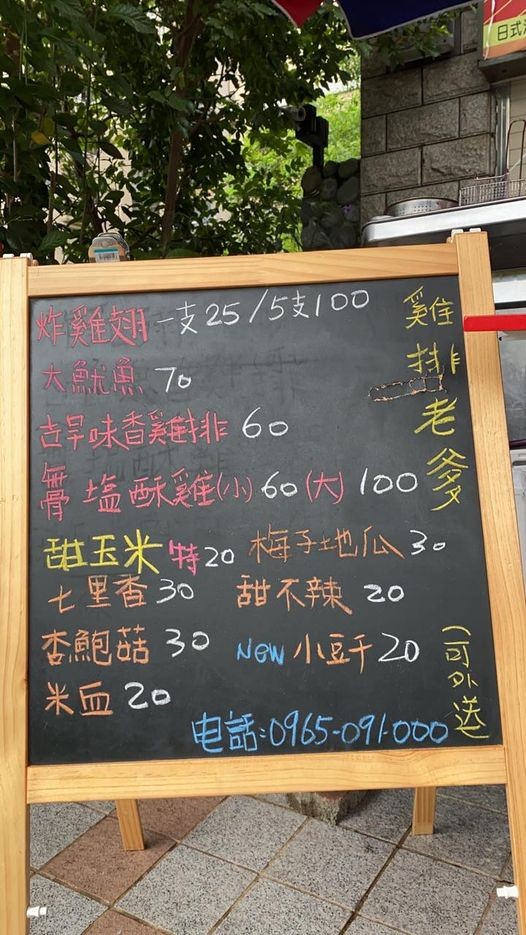 炸雞翅 一支25/5支100
大魷魚 70
古早味香雞排 60
無骨塩酥雞(小)60(大)100
甜玉米 特20 梅子地瓜30
七里香30 甜不辣 20
杏鮑菇 30 NEW 小豆干20
米血 20
电話:0965-091-000
雞排老爹
(可外送)
日式